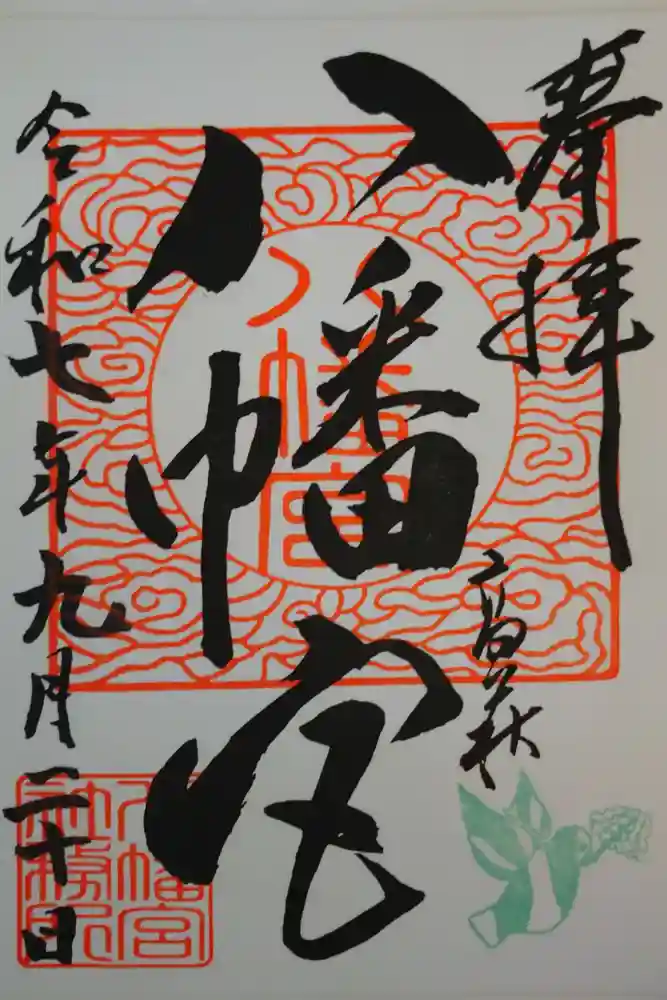 奉拝
高萩
八幡宮
八幡宮
令和七年九月二十日
八幡宮
社務所